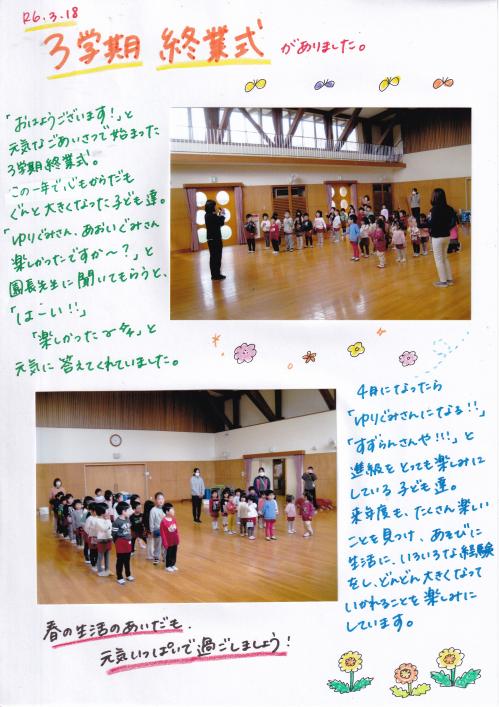 R6.3.18
3学期 終業式 がありました。
「おはようございます!」と
元気なごあいさつで始まった
3学期終業式。
この一年で心もからだも
ぐんと大きくなった子ども達。
「ゆりぐみさん、あおいぐみさん
楽しかったですか〜?」と
園長先生に聞いてもらうと、
「はーい!!」
「楽しかった〜!」と
元気に答えてくれていました。
4月になったら
「ゆりぐみさんになる!!」
「すずらんさんや!!!」と
進級をとっても楽しみに
している子ども達。
来年度も、たくさん楽しい
ことを見つけ、あそびに
生活に、いろいろな経験
をし、どんどん大きくなって
いかれることを楽しみに
しています。
春の生活のあいだも、
元気いっぱいで過ごしましょう!